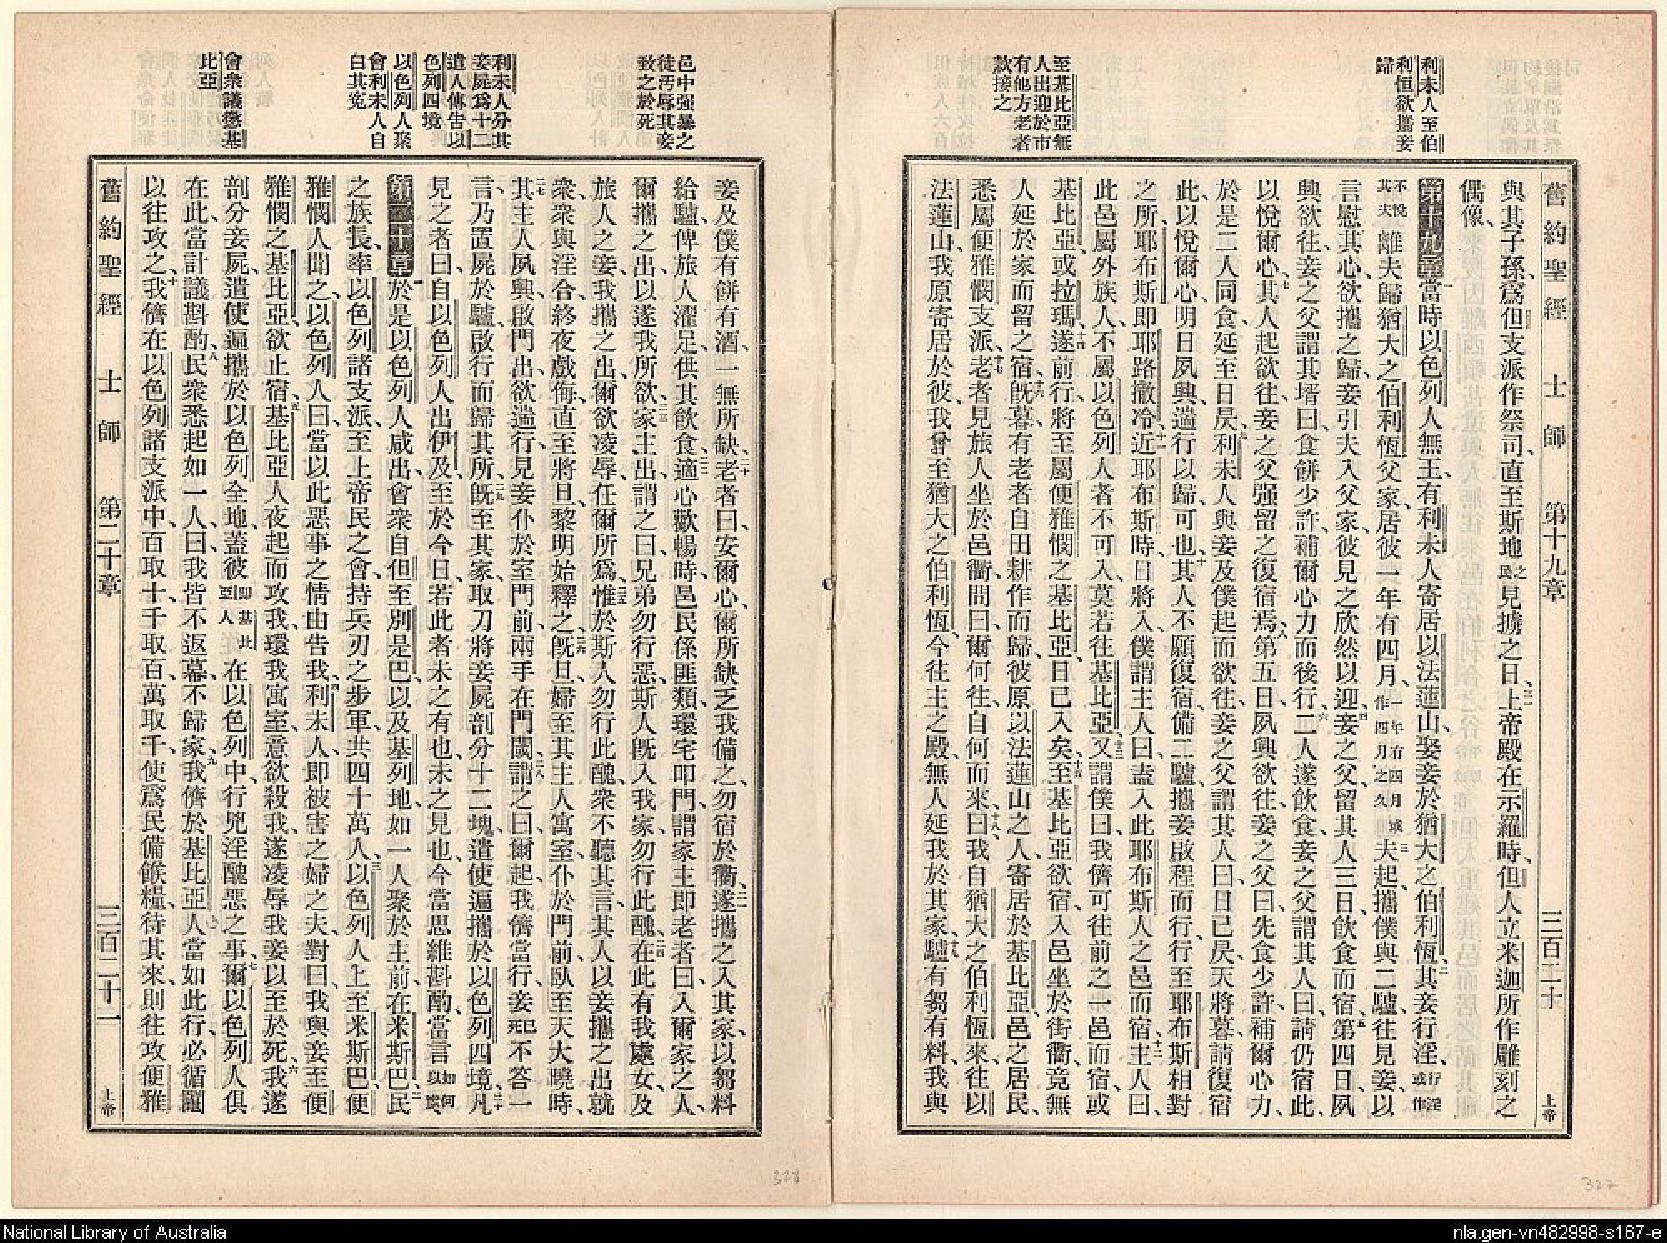 舊約聖經 士師 第十九章 三百二十 上帝
利未人至伯
利恒欲攜妾
歸
至基比亞無
人出迎於市
有他方老者
款接之
與其子孫、爲但支派作祭司、直至斯地之民見擄之日、三一上帝殿在示羅時、但人立米迦所作雕刻之
偶像、
第十九章 一當時以色列人無王、有利未人寄居以法蓮山、娶妾於猶大之伯利恆、二其妾行淫、行淫或作
不悅其夫離夫歸猶大之伯利恆父家、居彼一年有四月、一年有四月或作四月之久三夫起、攜僕與二驢、往見妾、以
言慰其心、欲攜之歸、妾引夫入父家、彼見之、欣然以迎、四妾之父留其人三日、飲食而宿、五第四日、夙
興欲往、妾之父謂其壻曰、食餅少許、補爾心力而後行、六二人遂飲食、妾之父謂其人曰、請仍宿此、
以悅爾心、七其人起欲往、妾之父强留之、復宿焉、八第五日、夙興欲往、妾之父曰、先食少許、補爾心力、
於是二人同食、延至日昃、九利未人與妾及僕起而欲往、妾之父謂其人曰、日已昃、天將暮、請復宿
此、以悅爾心、明日夙興、遄行以歸可也、十其人不願復宿、備二驢、攜妾啟程而行、行至耶布斯相對
之所、耶布斯卽耶路撒冷、十一近耶布斯時、日將入、僕謂主人曰、盍入此耶布斯人之邑而宿、十二主人曰、
此邑屬外族人、不屬以色列人者、不可入、莫若往基比亞、十三又謂僕曰、我儕可往前之一邑而宿、或
基比亞、或拉瑪、十四遂前行、將至屬便雅憫之基比亞、日已入矣、十五至基比亞欲宿、入邑坐於街衢、竟無
人延於家而留之宿、十六旣暮、有老者自田耕作而歸、彼原以法蓮山之人、寄居於基比亞、邑之居民、
悉屬便雅憫支派、十七老者見旅人坐於邑衢、問曰、爾何往、自何而來、十八曰、我自猶大之伯利恆來、往以
法蓮山、我原寄居於彼、我曾至猶大之伯利恆、今往主之殿、無人延我於其家、十九驢有芻有料、我與
邑中强暴之
徒汚辱其妾
致之於死
利未人分其
妾屍爲十二
遺人傳告以
色列四境
以色列人聚
會利未人自
白其寃
會衆議懲基
比亞
妾及僕有餅有酒、一無所缺、二十老者曰、安爾心、爾所缺乏、我備之、勿宿於衢、二一遂攜之入其家、以芻料
給驢、俾旅人濯足、供其飲食、二二適心歡暢時、邑民係匪類、環宅叩門、謂家主卽老者曰、入爾家之人、
爾攜之出、以遂我所欲、二三家主出、謂之曰、兄弟勿行惡、斯人旣入我家、勿行此醜、二四在此有我處女、及
旅人之妾、我攜之出、爾欲凌辱、任爾所爲、惟於斯人勿行此醜、二五衆不聽其言、其人以妾攜之出、就
衆、衆與淫合、終夜戲侮、直至將旦、黎明始釋之、二六旣旦、婦至其主人寓室、仆於門前、臥至天大曉時、
二七其主人夙興、啟門出、欲遄行、見妾仆於室門前、兩手在門閾、二八謂之曰、爾起、我儕當行、妾死已不答一
言、乃置屍於驢、啟行而歸其所、二九旣至其家、取刀將妾屍剖分十二塊、遣使遍攜於以色列四境、三十凡
見之者曰、自以色列人出伊及、至於今日、若此者未之有也、未之見也、今當思維斟酌、當言如何以處
第二十章 一於是以色列人咸出會衆、自但至別是巴、以及基列地、如一人聚於主前、在米斯巴、二民
之族長、率以色列諸支派、至上帝民之會、持兵刃之步軍、共四十萬人、三以色列人上至米斯巴、便
雅憫人聞之、以色列人曰、當以此惡事之情由告我、四利未人、卽被害之婦之夫、對曰、我與妾至便
雅憫之基比亞、欲止宿、五基比亞人夜起而攻我、環我寓室、意欲殺我、遂凌辱我妾、以至於死、六我遂
剖分妾屍、遣使遍攜於以色列全地、蓋彼卽基比亞人在以色列中、行兇淫醜惡之事、七爾以色列人俱
在此、當計議斟酌、八民衆悉起如一人、曰、我皆不返幕、不歸家、九我儕於基比亞人、當如此行、必循鬮
以往攻之、十我儕在以色列諸支派中、百取十、千取百、萬取千、使爲民備餱糧、待其來、則往攻便雅
舊約聖經 士師 第二十章 三百二十一 上帝
328
327
National Library of Australia
nla.gen-vn482998-s167-e